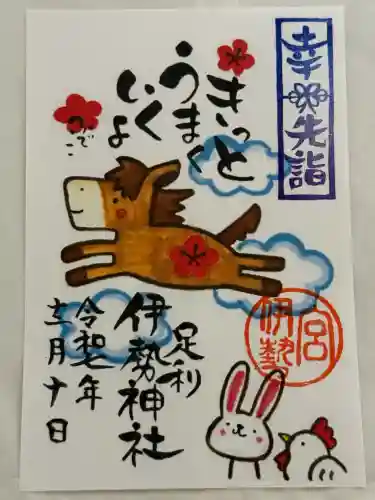 幸先詣
きっと
うまく
いくよ
のでこ
足利
伊勢神社
令和七年
十二月十日
伊勢宮